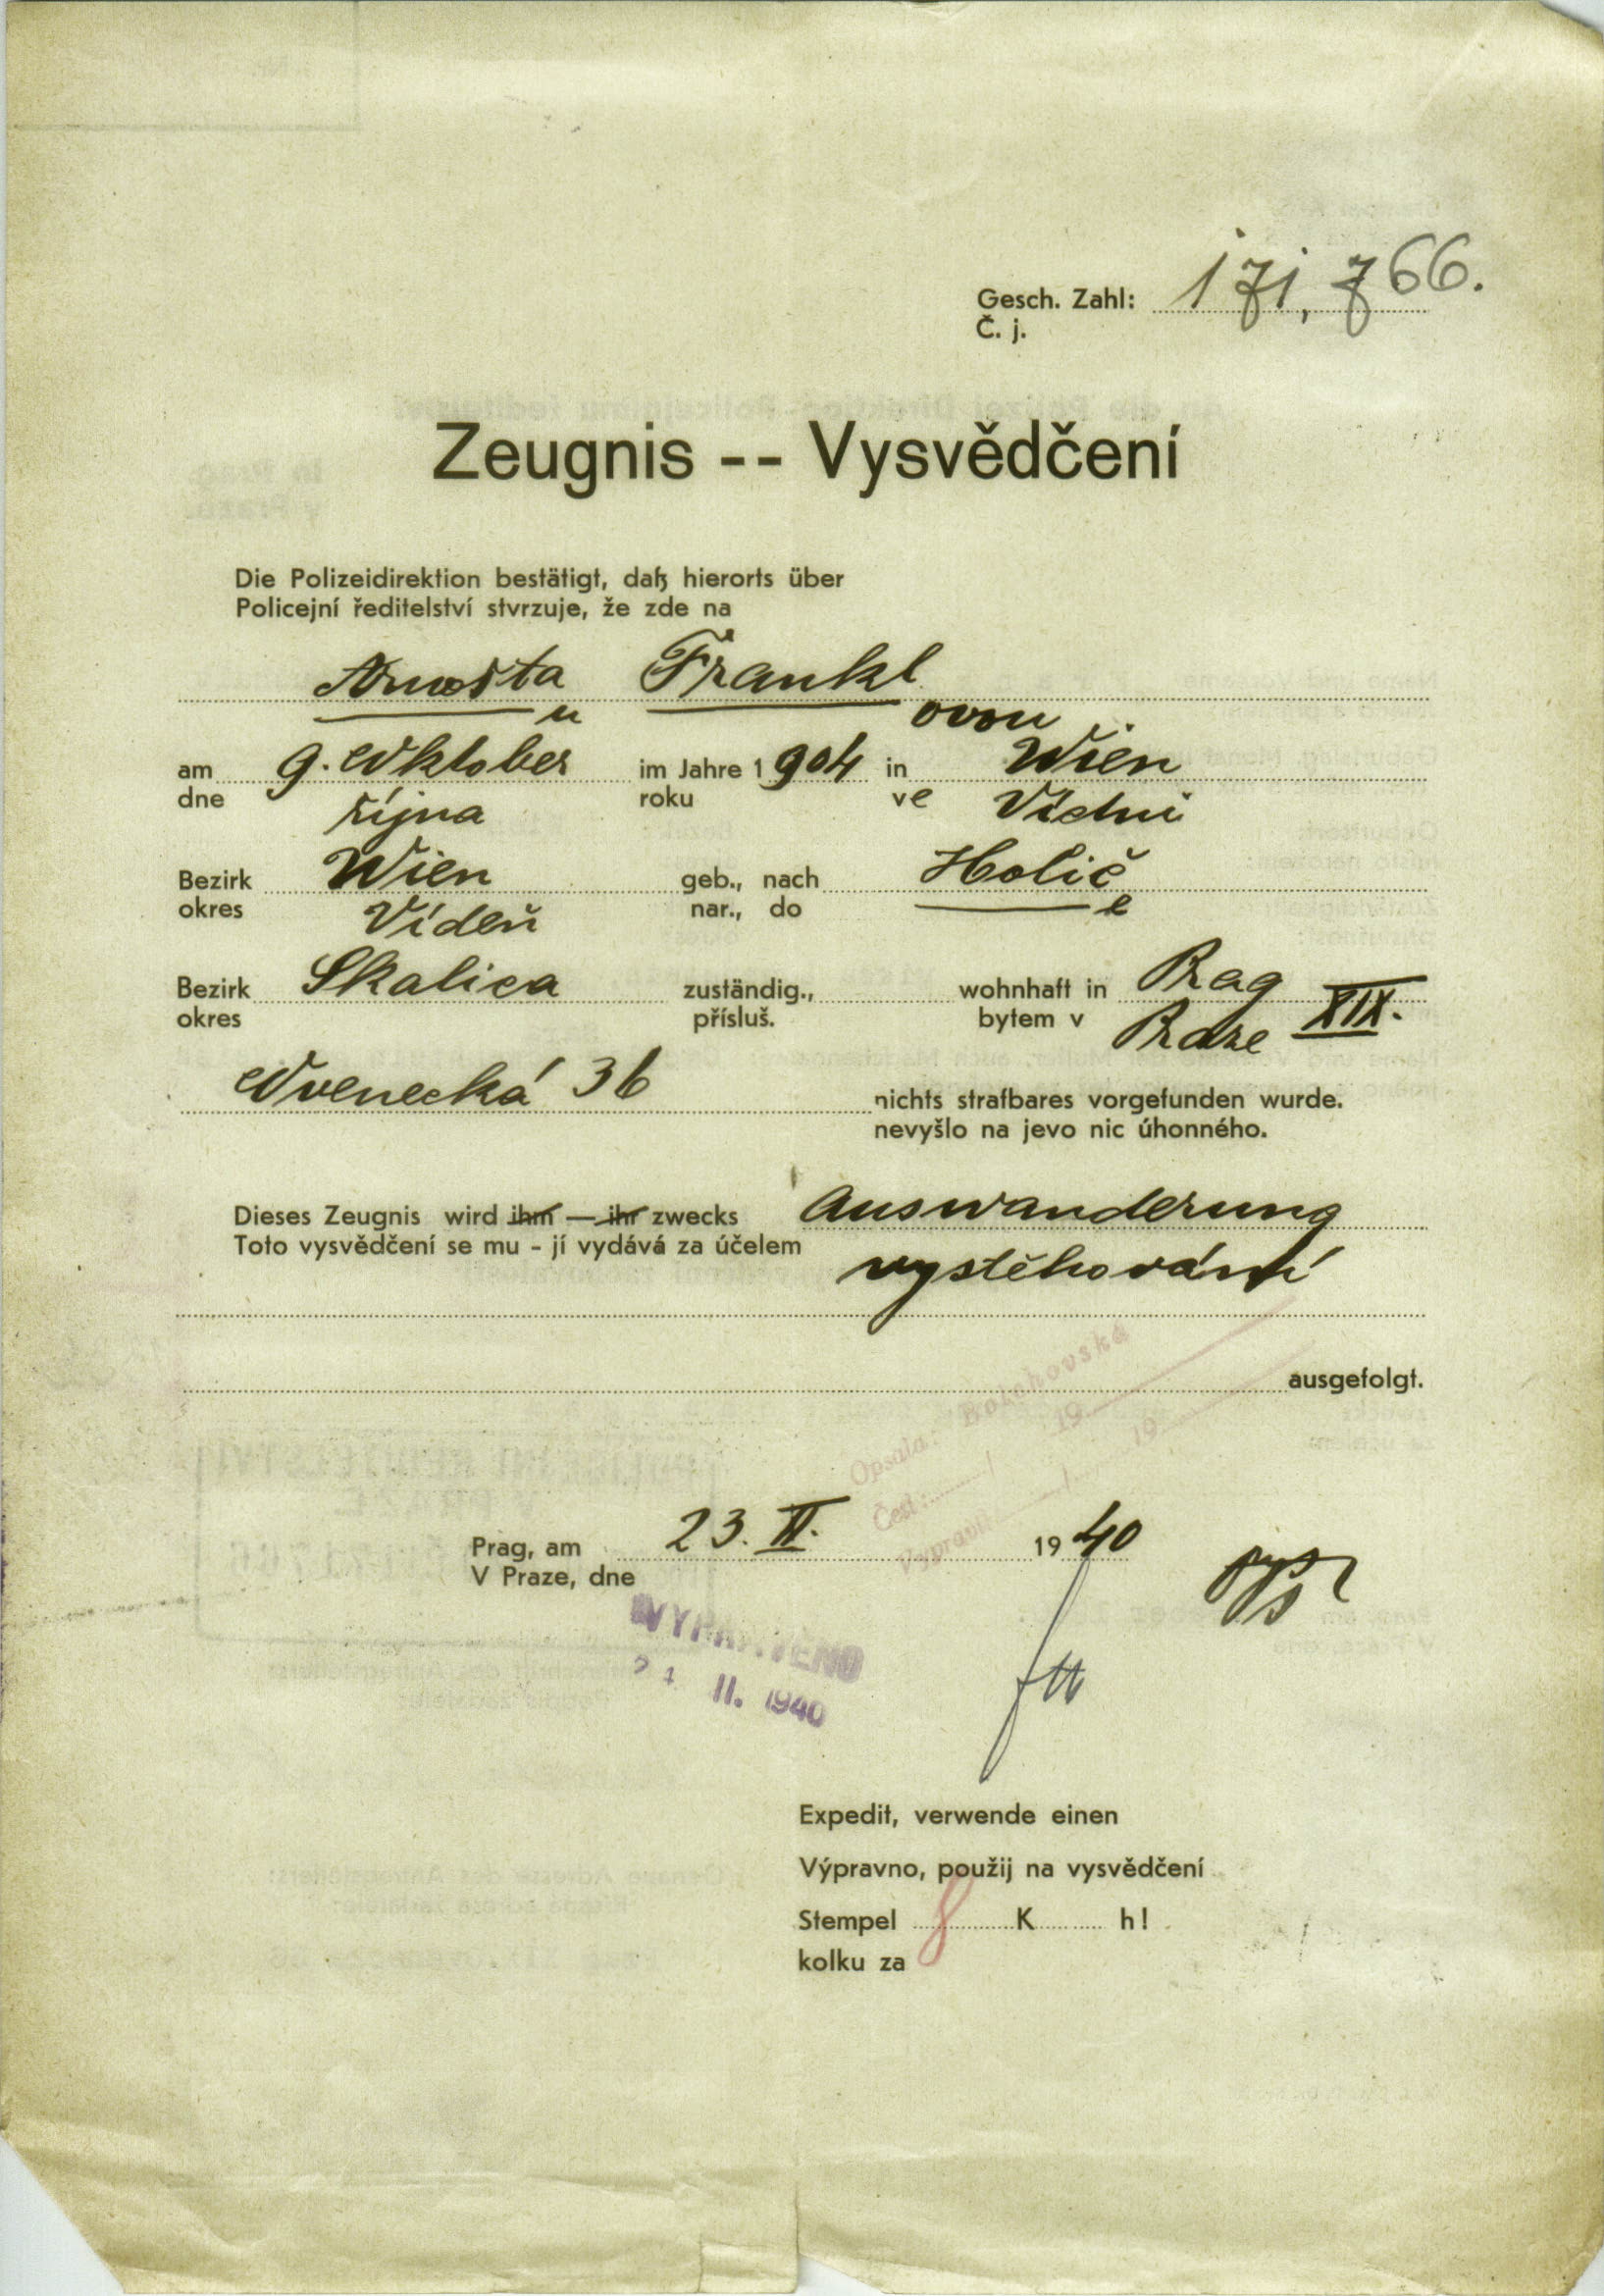 Gesch. Zahl: 171,766.
Č. j.
Zeugnis -- Vysvědčení
Die Polizeidirektion bestätigt, daß hierorts über
Policejní ředitelství stvrzuje, že zde na
Arnošta Frankl
u ovou
am 9. Oktober im Jahre 1904 in Wien
dne října roku ve Vídni
Bezirk Wien geb., nach Holič
okres Vídeň nar., do e
Bezirk Skalica zuständig., wohnhaft in Prag XIX.
okres přísluš. bytem v Praze
Ovenecká 36 nichts strafbares vorgefunden wurde.
nevyšlo na jevo nic úhonného.
Dieses Zeugnis wird ihm — ihr zwecks Auswanderung
Toto vysvědčení se mu - jí vydává za účelem vystěhování
ausgefolgt.
Opsala: Bokohovská
Čest: 19
Vypravil 19
Prag, am 23. II. 1940
V Praze, dne
VYPRAVENO
II. 1940
Expedit, verwende einen
Výpravno, použij na vysvědčení
Stempel 8 K h!
kolku za